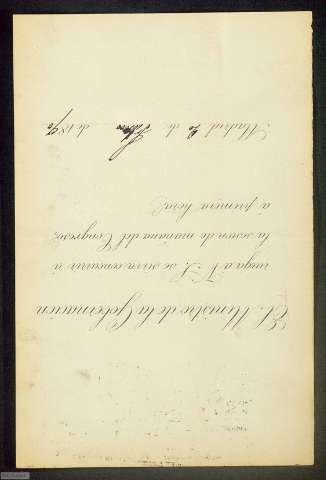 El Ministro de la Gobernación
ruega a V. S. se sirva concurrir á
la sesion de mañana del Congreso,
á primera hora.
Madrid 20 de de 1890